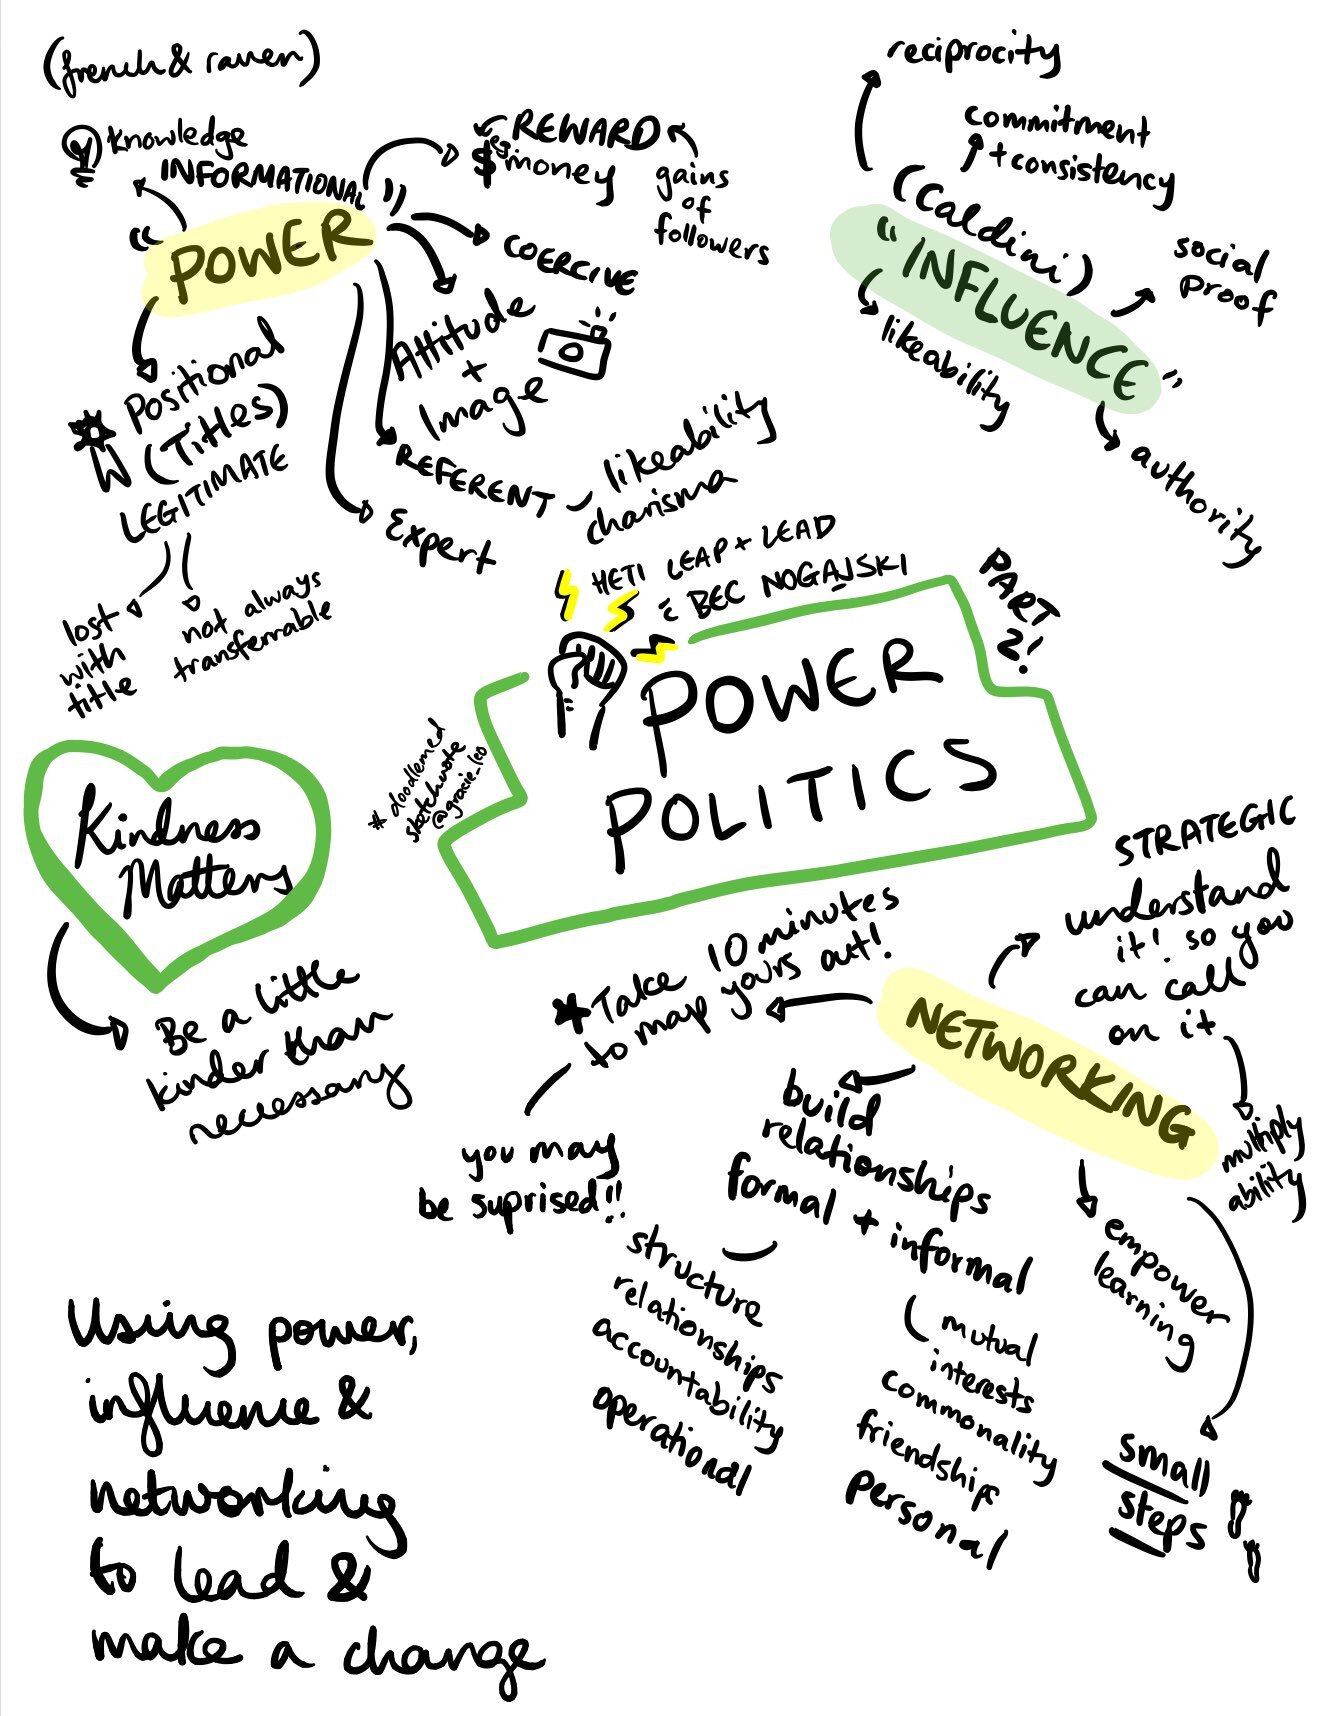 (french & raven)
knowledge
INFORMATIONAL
"POWER"
REWARD
$ money
gains
of
followers
COERCIVE
Attitude
+
Image
REFERENT
likeability
charisma
Expert
Positional
(Titles)
LEGITIMATE
lost
with
title
not always
transferrable
reciprocity
commitment
+ consistency
(Caldini)
"INFLUENCE"
social
proof
likeability
authority
HETI LEAP + LEAD
& BEC NOGAJSKI
PART
2!
POWER
POLITICS
# doodlemed
sketchnote
@gracie_leo
Kindness
Matters
Be a little
kinder than
necessary
NETWORKING
STRATEGIC
understand
it! so you
can call
on it
multiply
ability
*Take 10 minutes
to map yours out!
you may
be suprised!!
build
relationships
formal + informal
structure
relationships
accountability
operational
mutual
interests
commonality
friendships
personal
empower
learning
small
steps
Using power,
influence &
networking
to lead &
make a change